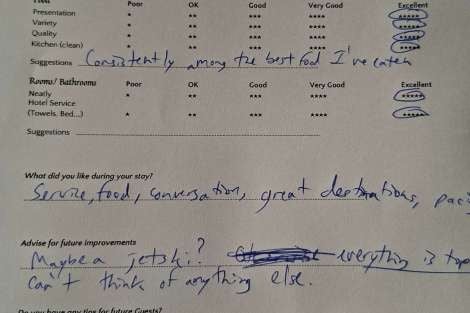 Food Poor OK Good Very Good Excellent
Presentation * ** *** **** *****
Variety * ** *** **** *****
Quality * ** *** **** *****
Kitchen (clean) * ** *** **** *****
Suggestions Consistently among the best food I've eaten
Rooms/ Bathrooms Poor OK Good Very Good Excellent
Neatly * ** *** **** *****
Hotel Service
(Towels, Bed...) * ** *** **** *****
Suggestions
What did you like during your stay?
Service, food, conversation, great destinations,
Advise for future improvements
Maybe a jetski? everything is top
Can't think of anything else.
Do you have any tips for future Guests?